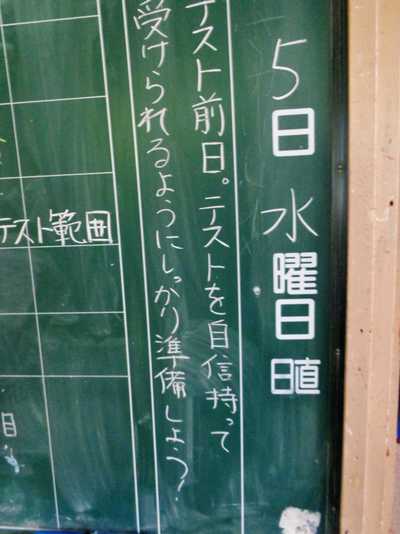 5日 水曜日
日直
テスト前日。テストを自信持って
受けられるようにしっかり準備しよう!
テスト範囲